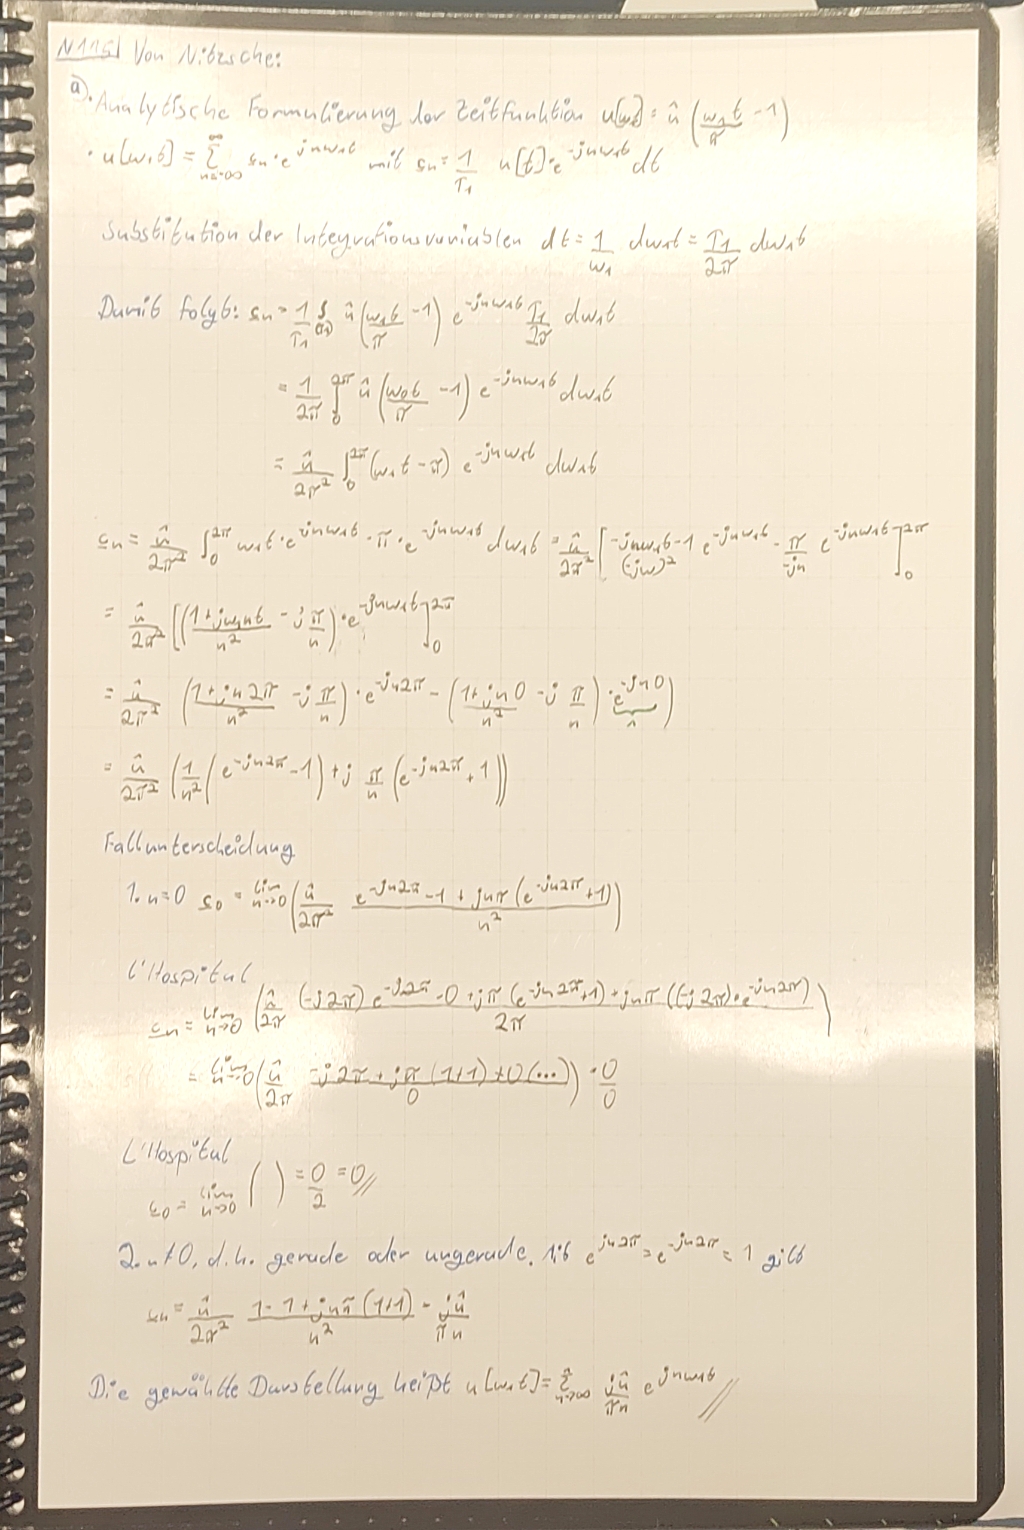 N115| Von Nitzsche:
a). Analytische Formulierung der Zeitfunktion u[ω₁t] = û (ω₁t/π - 1)
· u[ω₁t] = Σ_{n=-∞}^{∞} c̲n · e^{jnω₁t} mit c̲n = 1/T₁ u[t] · e^{-jnω₁t} dt
Substitution der Integrationsvariablen dt = 1/ω₁ dω₁t = T₁/2π dω₁t
Damit folgt: c̲n = 1/T₁ ∫_(T₁) û (ω₁t/π - 1) e^{-jnω₁t} T₁/2π dω₁t
= 1/2π ∫_0^{2π} û (ω₀t/π - 1) e^{-jnω₁t} dω₁t
= û/2π² ∫_0^{2π} (ω₁t - π) e^{-jnω₁t} dω₁t
c̲n = û/2π² ∫_0^{2π} ω₁t · e^{-jnω₁t} - π · e^{-jnω₁t} dω₁t = û/2π² [(-jnω₁t - 1)/(-jω)² e^{-jnω₁t} - π/-jn e^{-jnω₁t}]_0^{2π}
= û/2π² [((1 + jω₁nt)/n² - j π/n) · e^{-jnω₁t}]_0^{2π}
= û/2π² ((1 + jn2π)/n² - j π/n) · e^{-jn2π} - ((1 + jn0)/n² - j π/n) · e^{-jn0})
= û/2π² (1/n² (e^{-jn2π} - 1) + j π/n (e^{-jn2π} + 1))
Fallunterscheidung
1. n=0 c̲₀ = lim n→0 (û/2π² (e^{-jn2π} - 1 + jnπ (e^{-jn2π} + 1))/n²)
L'Hospital
c̲n = lim n→0 (û/2π ((-j2π) e^{-j2π} - 0 + jπ (e^{-jn2π} + 1) + jnπ ((-j2π) · e^{-jn2π}))/2π)
= lim n→0 (û/2π (-j2π + jπ (1+1) + 0(...))/0) · 0/0
L'Hospital
c̲₀ = lim n→0 ( ) = 0/2 = 0//
2. n≠0, d.h. gerade oder ungerade. Mit e^{jn2π} = e^{-jn2π} = 1 gilt
c̲n = û/2π² (1 - 1 + jnπ (1+1))/n² = jû/πn
Die gewählte Darstellung heißt u[ω₁t] = Σ_{n→∞} jû/πn e^{jnω₁t}//